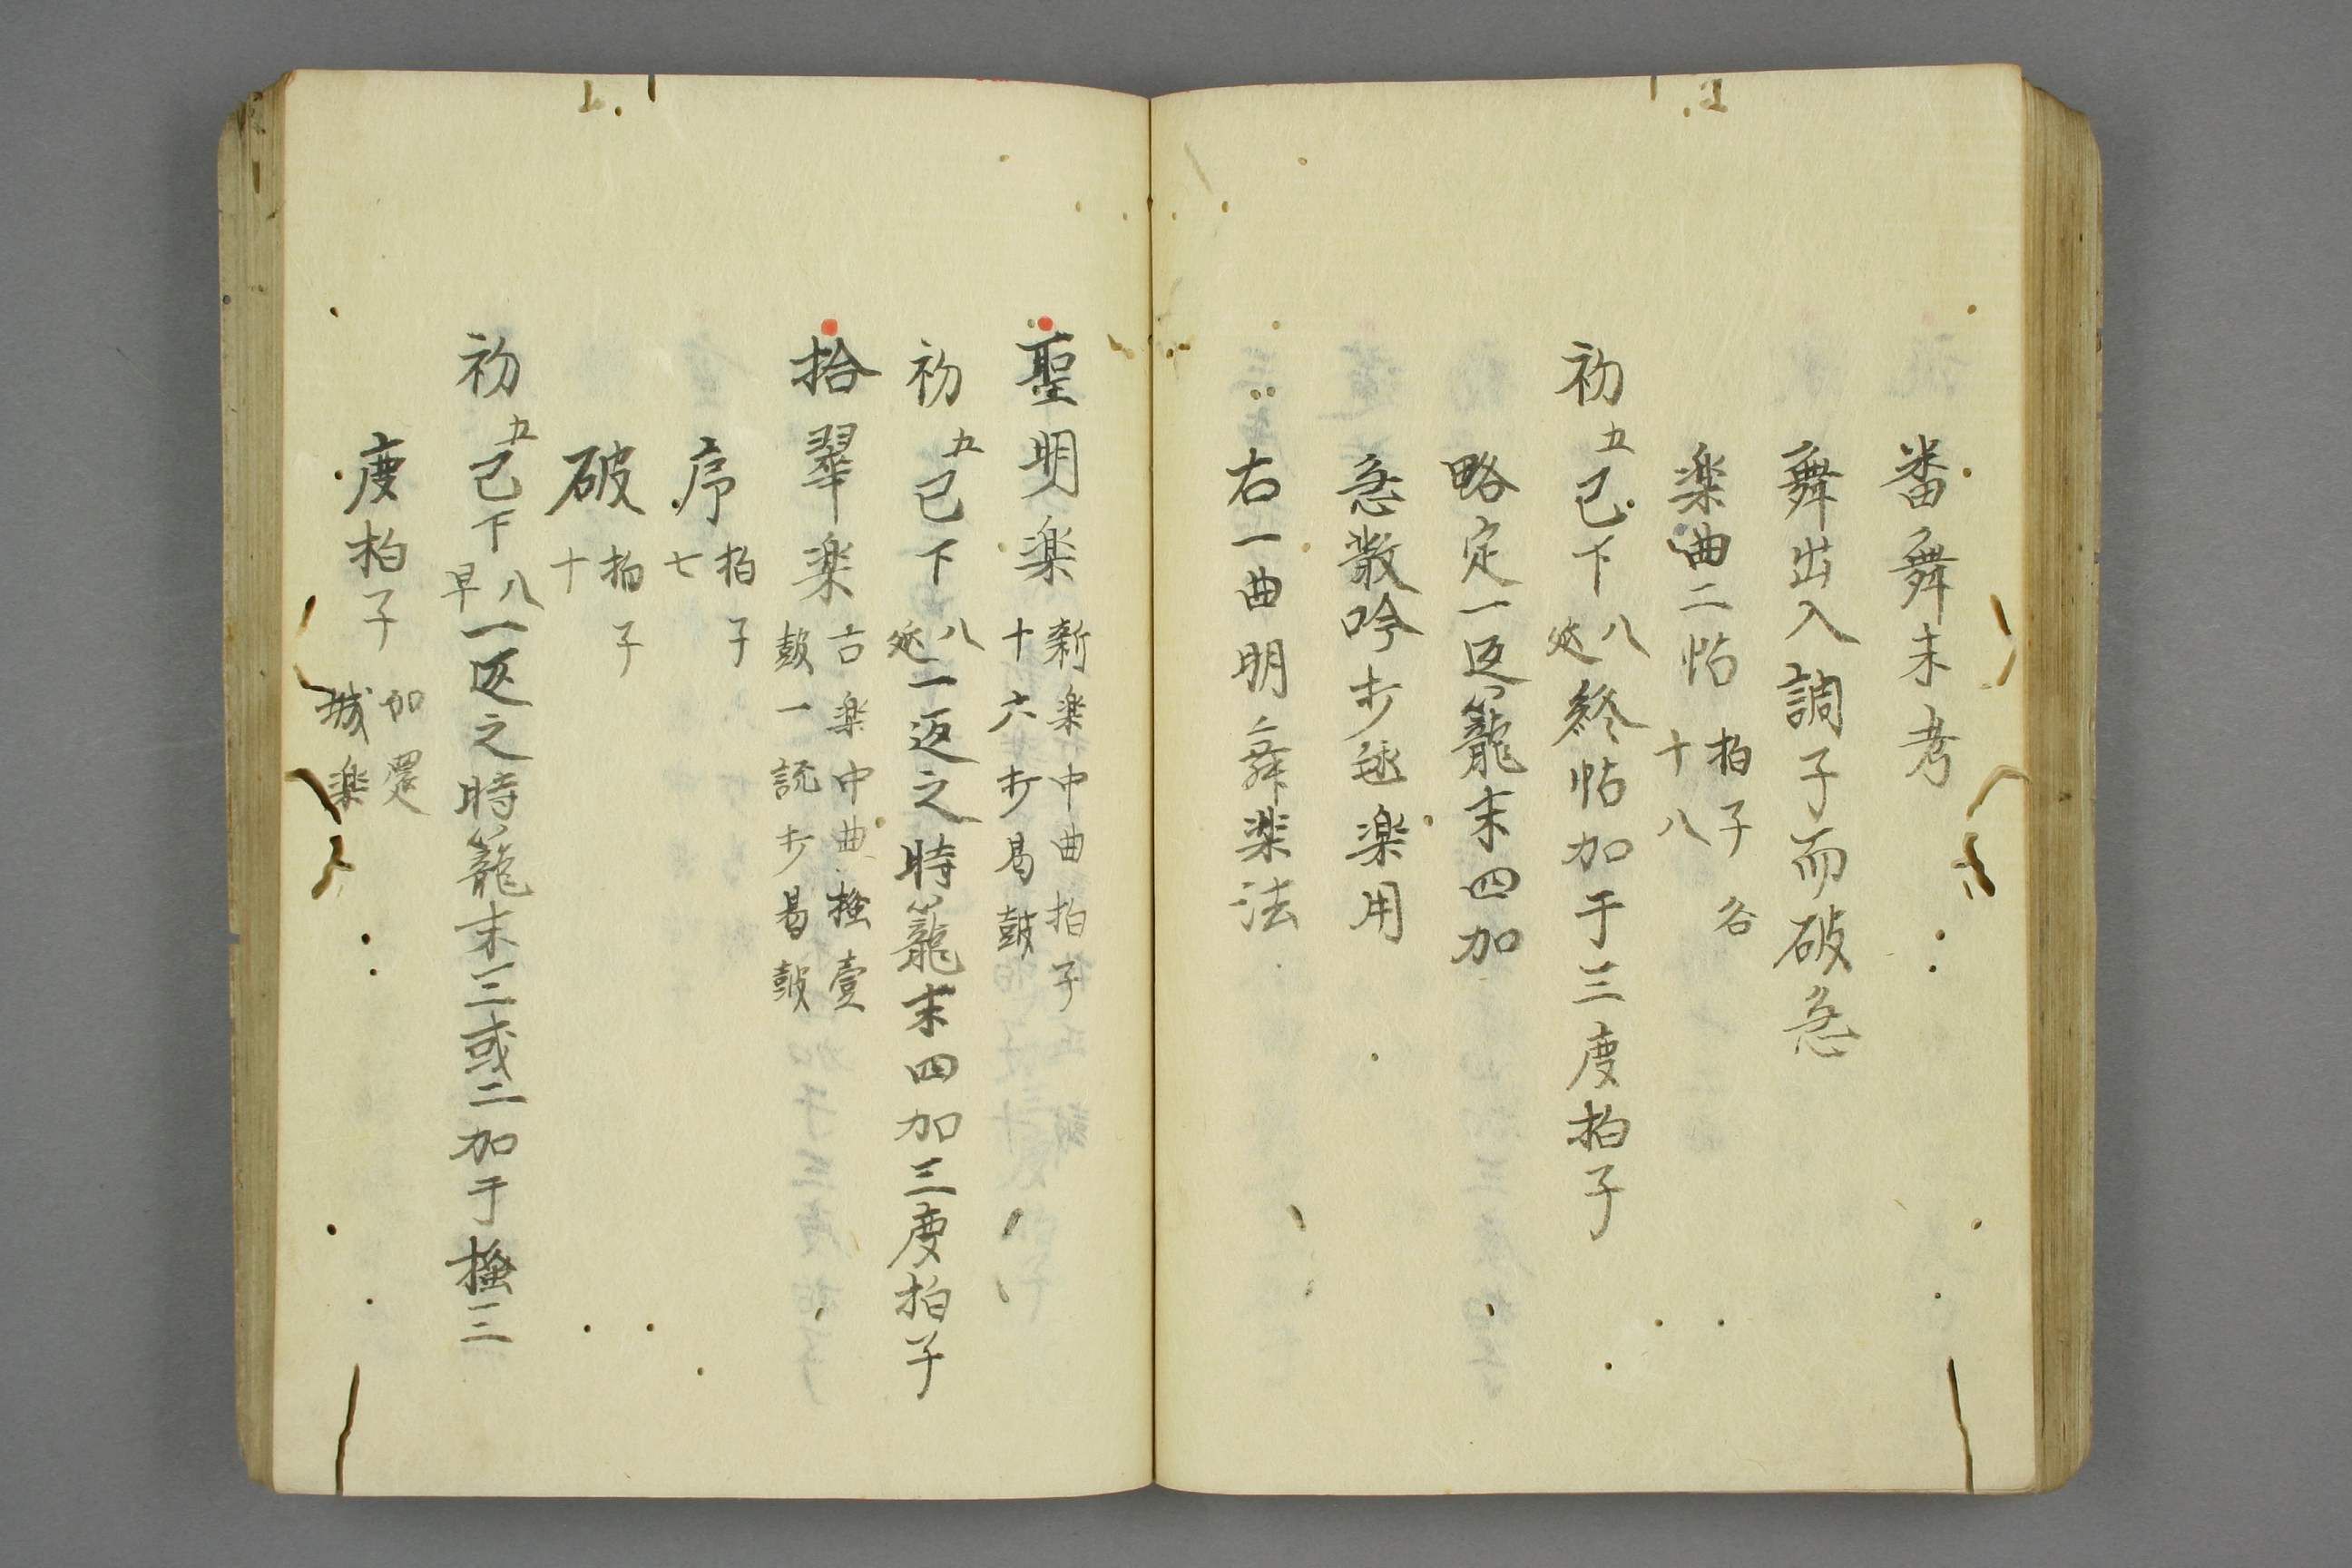 番舞未考
舞出入調子而破急
楽曲二帖 拍子各十八
初五已下八延終帖加于三度拍子
略定一返籠末四加
急散吟歩毬楽用
右一曲明舞楽法
聖明楽 新楽中曲拍子十六歩曷鼓
初五已下八延一返之時籠末四加三度拍子
拾翠楽 古楽中曲揩壹鼓一説歩曷鼓
序 拍子七
破 拍子十
初五已下八早一返之時籠末三或二加于揩三
度拍子 加還城楽